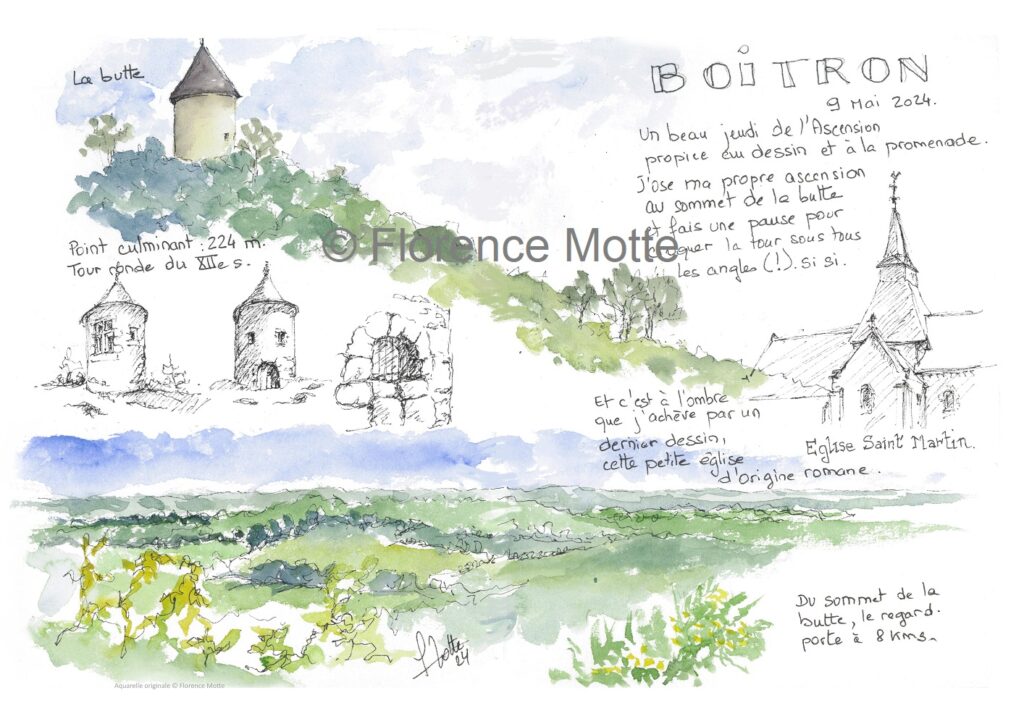 La butte
BOiTRON
9 Mai 2024.
Un beau jeudi de l'Ascension
propice au dessin et à la promenade.
J'ose ma propre ascension
au sommet de la butte
et fais une pause pour
croquer la tour sous tous
les angles (!). si si.
Point culminant : 224 m.
Tour ronde du XIIe s.
© Florence Motte
Et c'est à l'ombre
que j'achève par un
dernier dessin,
cette petite église
d'origine romane.
Eglise Saint Martin.
Du sommet de la
butte, le regard.
porte à 8 kms.
FMotte
24
Aquarelle originale © Florence Motte